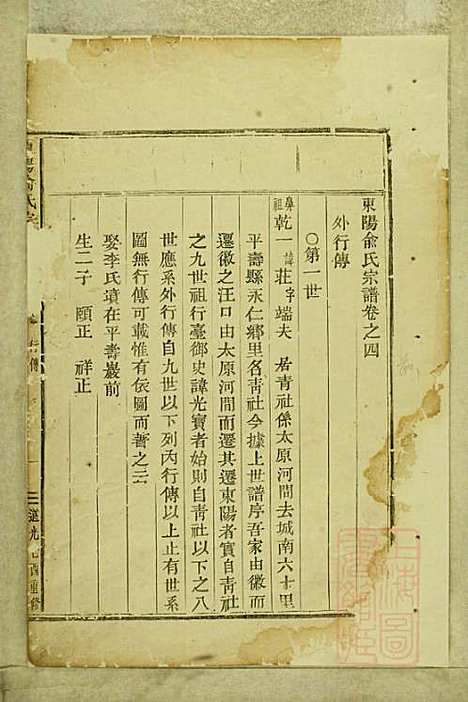 東陽俞氏宗譜卷之四
外行傳
○第一世
鼻祖乾一諱莊字端夫 居青社係太原河間去城南六十里
平壽縣永仁鄉里名青社今據上世譜序吾家由徽而
遷徽之汪口由太原河間而遷其遷東陽者實自青社
之九世祖行臺御史諱光實者始則自青社以下之八
世應系外行傳自九世以下列內行傳以上止有世系
圖無行傳可載惟有依圖而著之云
娶李氏墳在平壽巖前
生二子 頤正 祥正
俞氏宗
行傳
一
道光 酉重修